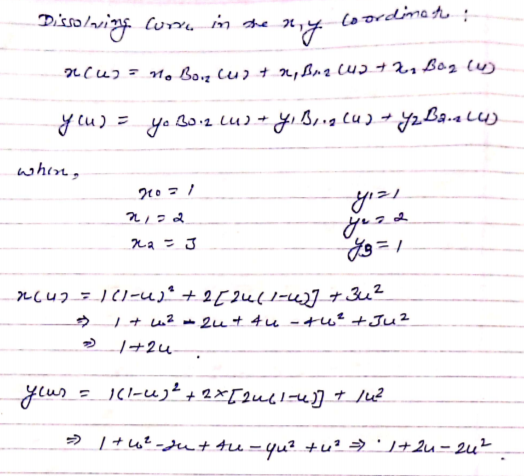 Dissolving curve in the x,y coordinate :
x(u) = x₀ B₀.₂ (u) + x₁ B₁.₂ (u) + x₂ B₂.₂ (u)
y(u) = y₀ B₀.₂ (u) + y₁ B₁.₂ (u) + y₂ B₂.₂ (u)
when,
x₀ = 1 y₁ = 1
x₁ = 2 y₂ = 2
x₂ = 3 y₃ = 1
x(u) = 1(1-u)² + 2[2u(1-u)] + 3u²
⇒ 1 + u² - 2u + 4u - 4u² + 3u²
⇒ 1+2u.
y(u) = 1(1-u)² + 2×[2u(1-u)] + 1u²
⇒ 1 + u² - 2u + 4u - 4u² + u² ⇒ 1+2u-2u²